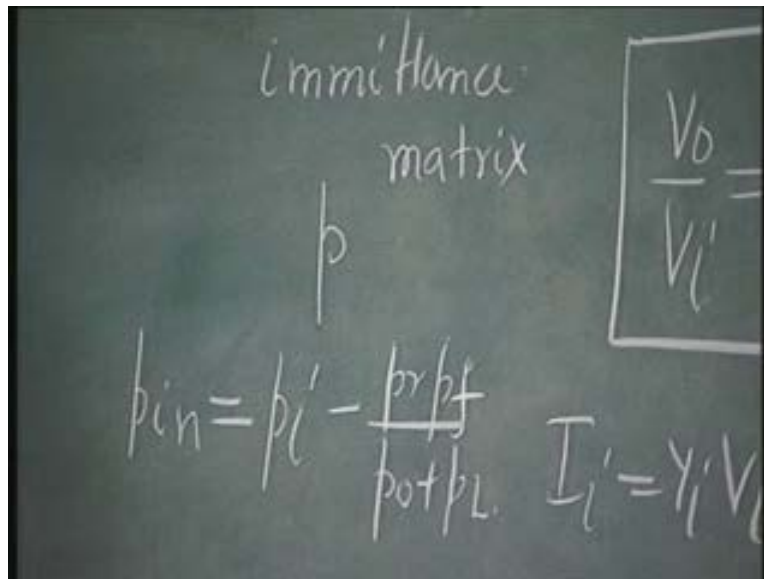 immittance
matrix
p
Vo
— =
Vi
pin = pi - prpf / po+pL.
Ii = yi Vi